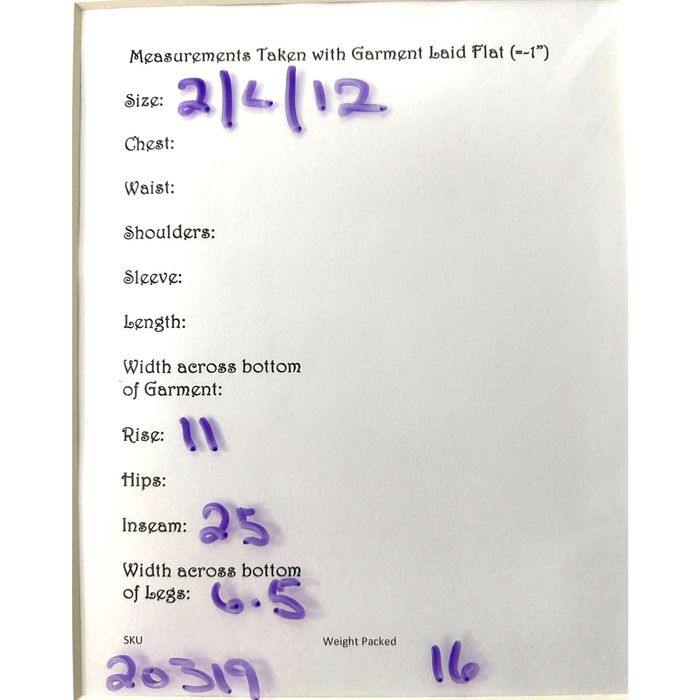 Measurements Taken with Garment Laid Flat (=~1”)
Size: 2/L/12
Chest:
Waist:
Shoulders:
Sleeve:
Length:
Width across bottom
of Garment:
Rise: 11
Hips:
Inseam: 25
Width across bottom
of Legs: 6.5
SKU Weight Packed
20319 16